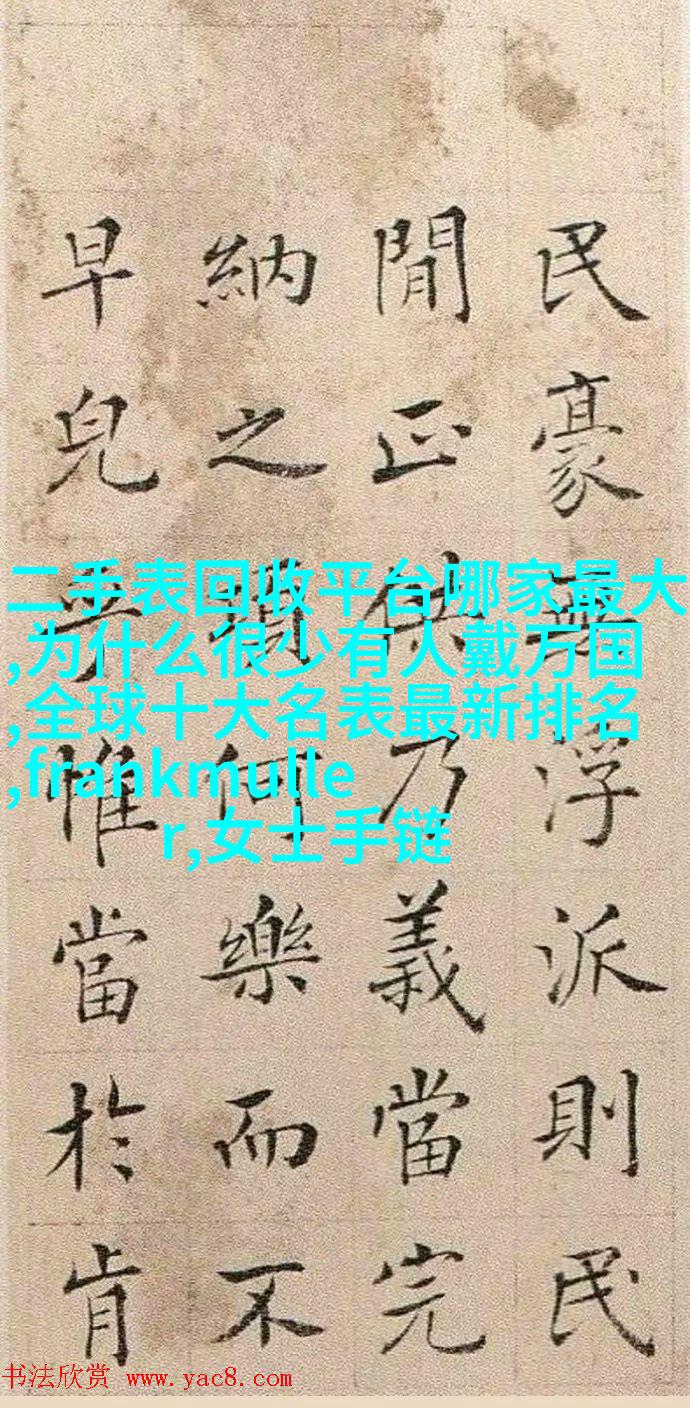 民豪無浮派則民
閒正供乃義當完
納之何樂而不
早兒惟當於肯
二手表回收平台哪家最大
,为什么很少有人戴万国
,全球十大名表最新排名
,frankmulle
r,女士手链
书法欣赏 www.yac8.com